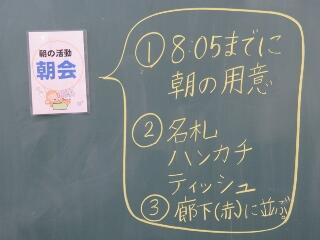 朝の活動
朝会
①8:05までに
朝の用意
②名札
ハンカチ
ティッシュ
③廊下(赤)に並ぶ。